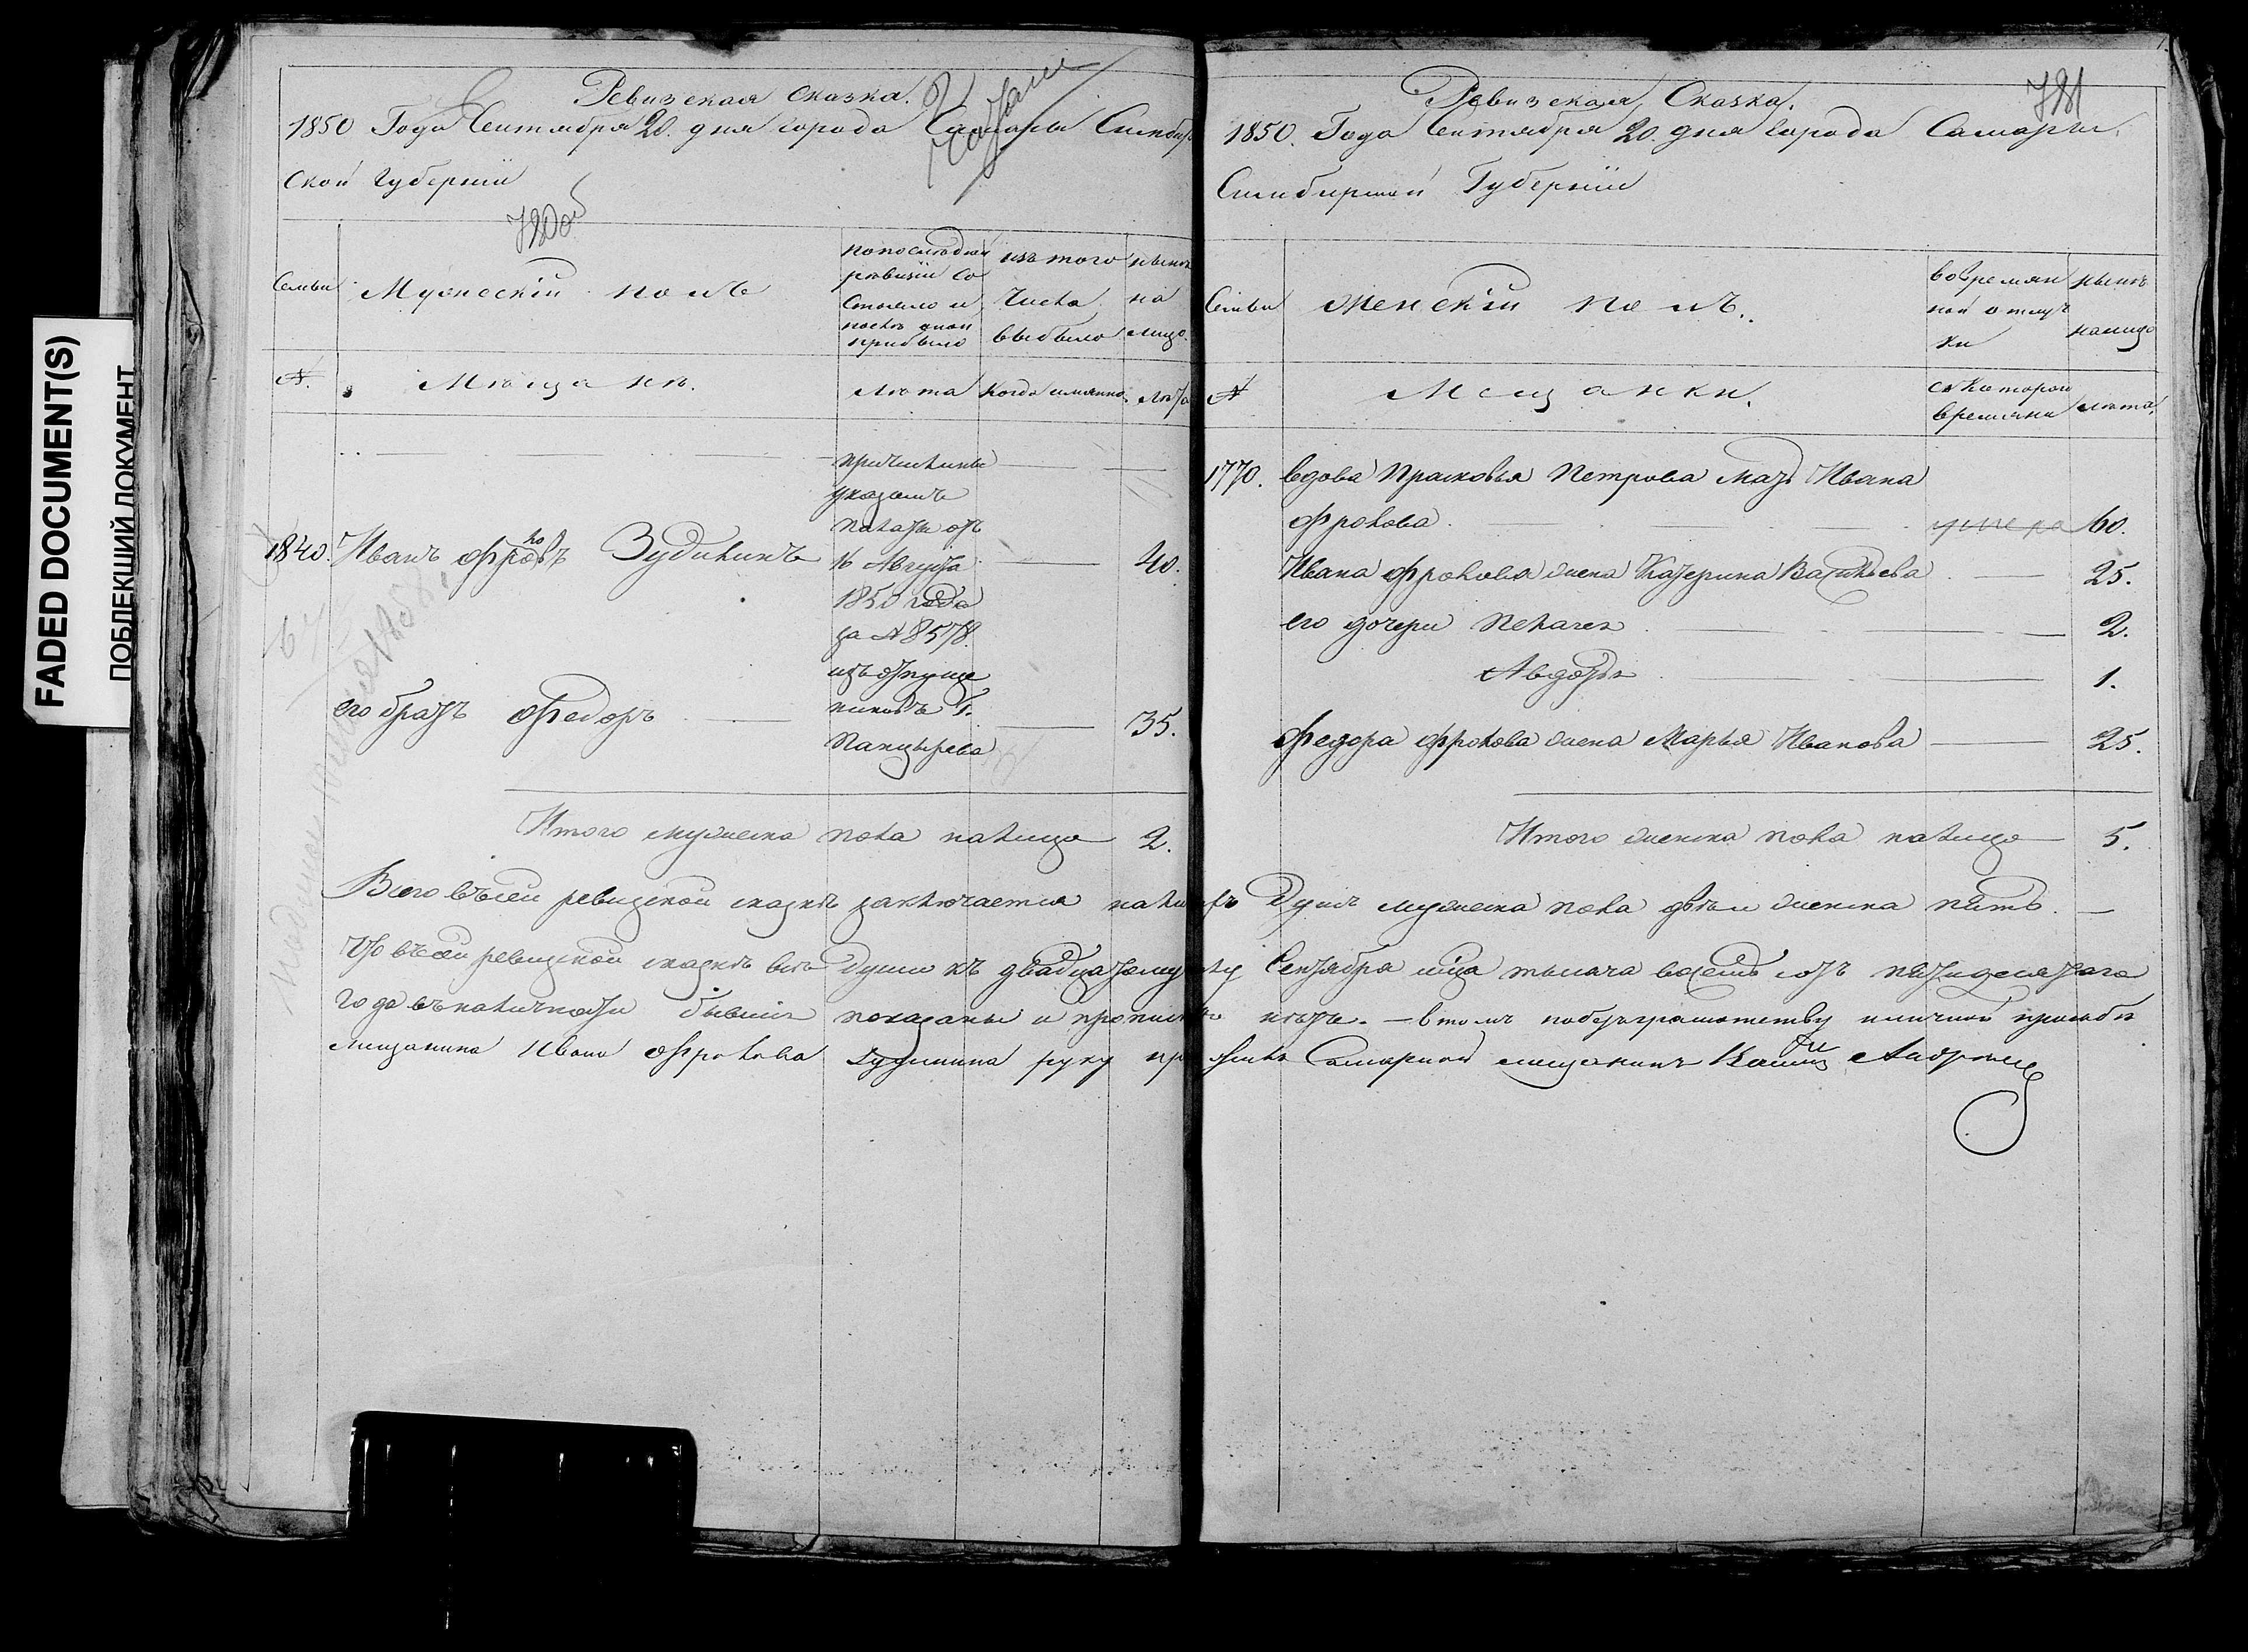 FADED DOCUMENT(S)
ПОБЛЕКШИЙ ДОКУМЕНТ
Ревизская Сказка.
1850 Года Сентября 20. дня города Самары Симбир
ской Губернии
780об
Семьи
Мужескій полъ
по последней ревизіи состояло и после оной прибыло
изъ того числа выбыло
ныне на лицо.
№.
Мещане.
Лета
Когда имянно.
Лета
причислены
указомъ
палаты отъ
1840. Иванъ Фроловъ Зудилинъ 16 Августа 40.
1850 года
за № 8578.
изъ отпуще
его братъ Федоръ никовъ Г. 35.
Панцырева
Итого мужеска пола налицо 2.
Ревизская Сказка.
781
1850. Года Сентября 20 дня города Самары.
Симбирской Губерніи
Семьи
Женскій полъ.
во времян
ной отлуч
ки
ныне
налицо
№
Мещанки.
съ которого
времяни
лета.
1770. вдова Прасковья Петрова мать Ивана
Фролова. умера 60.
Ивана Фролова жена Катерина Васильева 25.
его дочери Пелагея 2.
Авдотья 1.
Федора Фролова жена Марья Иванова 25.
Итого женска пола налицо 5.
Всего въ сей ревизской сказке заключается налицо Душъ мужеска пола две и женска пять.
Что въ сей ревизской сказке все Души къ двадцатому Сентября мца тысяча восемь сотъ пятидесятого
года въ наличности бывшія показаны и прописныхъ нетъ. — в томъ по безграмотству и личной прозьбе
мещанина Ивана Фролова руку приложилъ Самарской мещанинъ